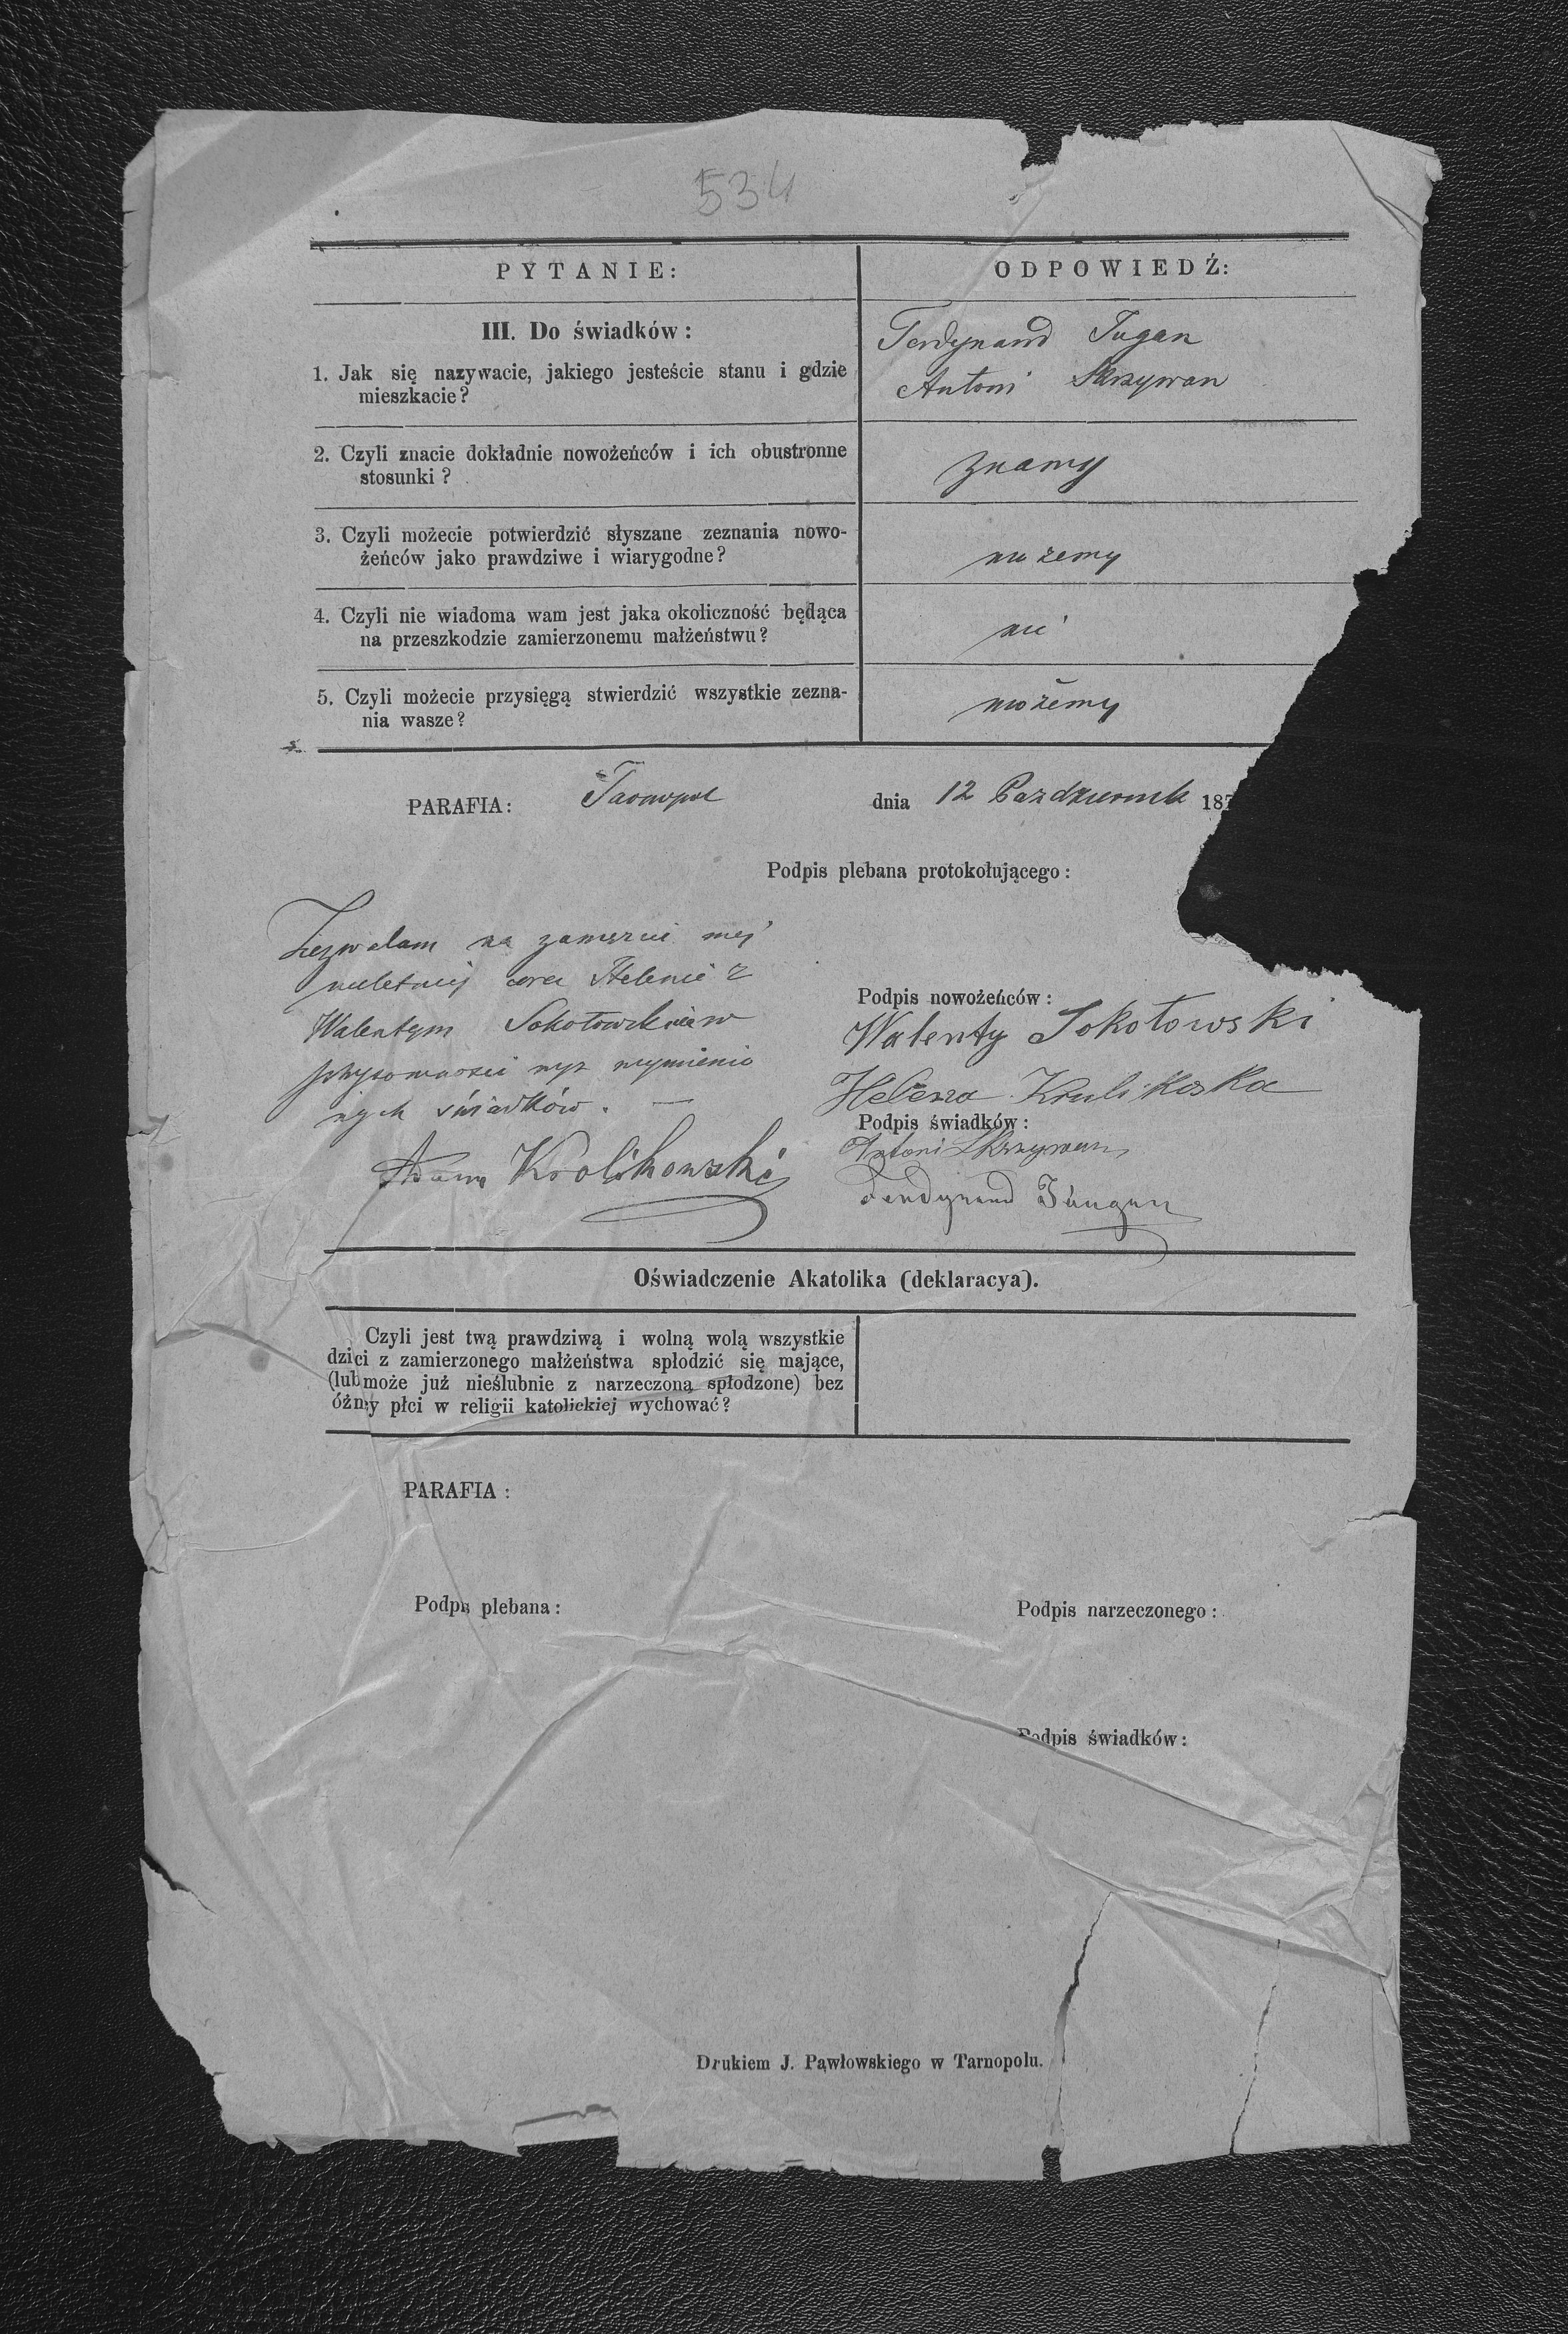 534
PYTANIE:
ODPOWIEDŹ:
III. Do świadków:
1. Jak się nazywacie, jakiego jesteście stanu i gdzie
mieszkacie?
Ferdynand Tugan
Antoni Skrzywan
2. Czyli znacie dokładnie nowożeńców i ich obustronne
stosunki?
znamy
3. Czyli możecie potwierdzić słyszane zeznania nowo-
żeńców jako prawdziwe i wiarygodne?
możemy
4. Czyli nie wiadoma wam jest jaka okoliczność będąca
na przeszkodzie zamierzonemu małżeństwu?
nie
5. Czyli możecie przysięgą stwierdzić wszystkie zezna-
nia wasze?
możemy
PARAFIA: Tarnopol
dnia 12 Październik 187
Podpis plebana protokołującego:
Zezwalam na zamęzcie mej
nieletniej Helenie z
Walentym Sokołowskiem w
przytomności wyż wymienio
nych świadków. —
Adam Krolikowski
Podpis nowożeńców:
Walenty Sokołowski
Helena Krulikoska
Podpis świadków:
Antoni Skrzywan
Ferdynand
Oświadczenie Akatolika (deklaracya).
Czyli jest twą prawdziwą i wolną wolą wszystkie
dzieci z zamierzonego małżeństwa spłodzić się mające,
(lub może już nieślubnie z narzeczoną spłodzone) bez
óżny płci w religii katolickiej wychować?
PARAFIA:
Podpis plebana:
Podpis narzeczonego:
Podpis świadków:
Drukiem J. Pawłowskiego w Tarnopolu.